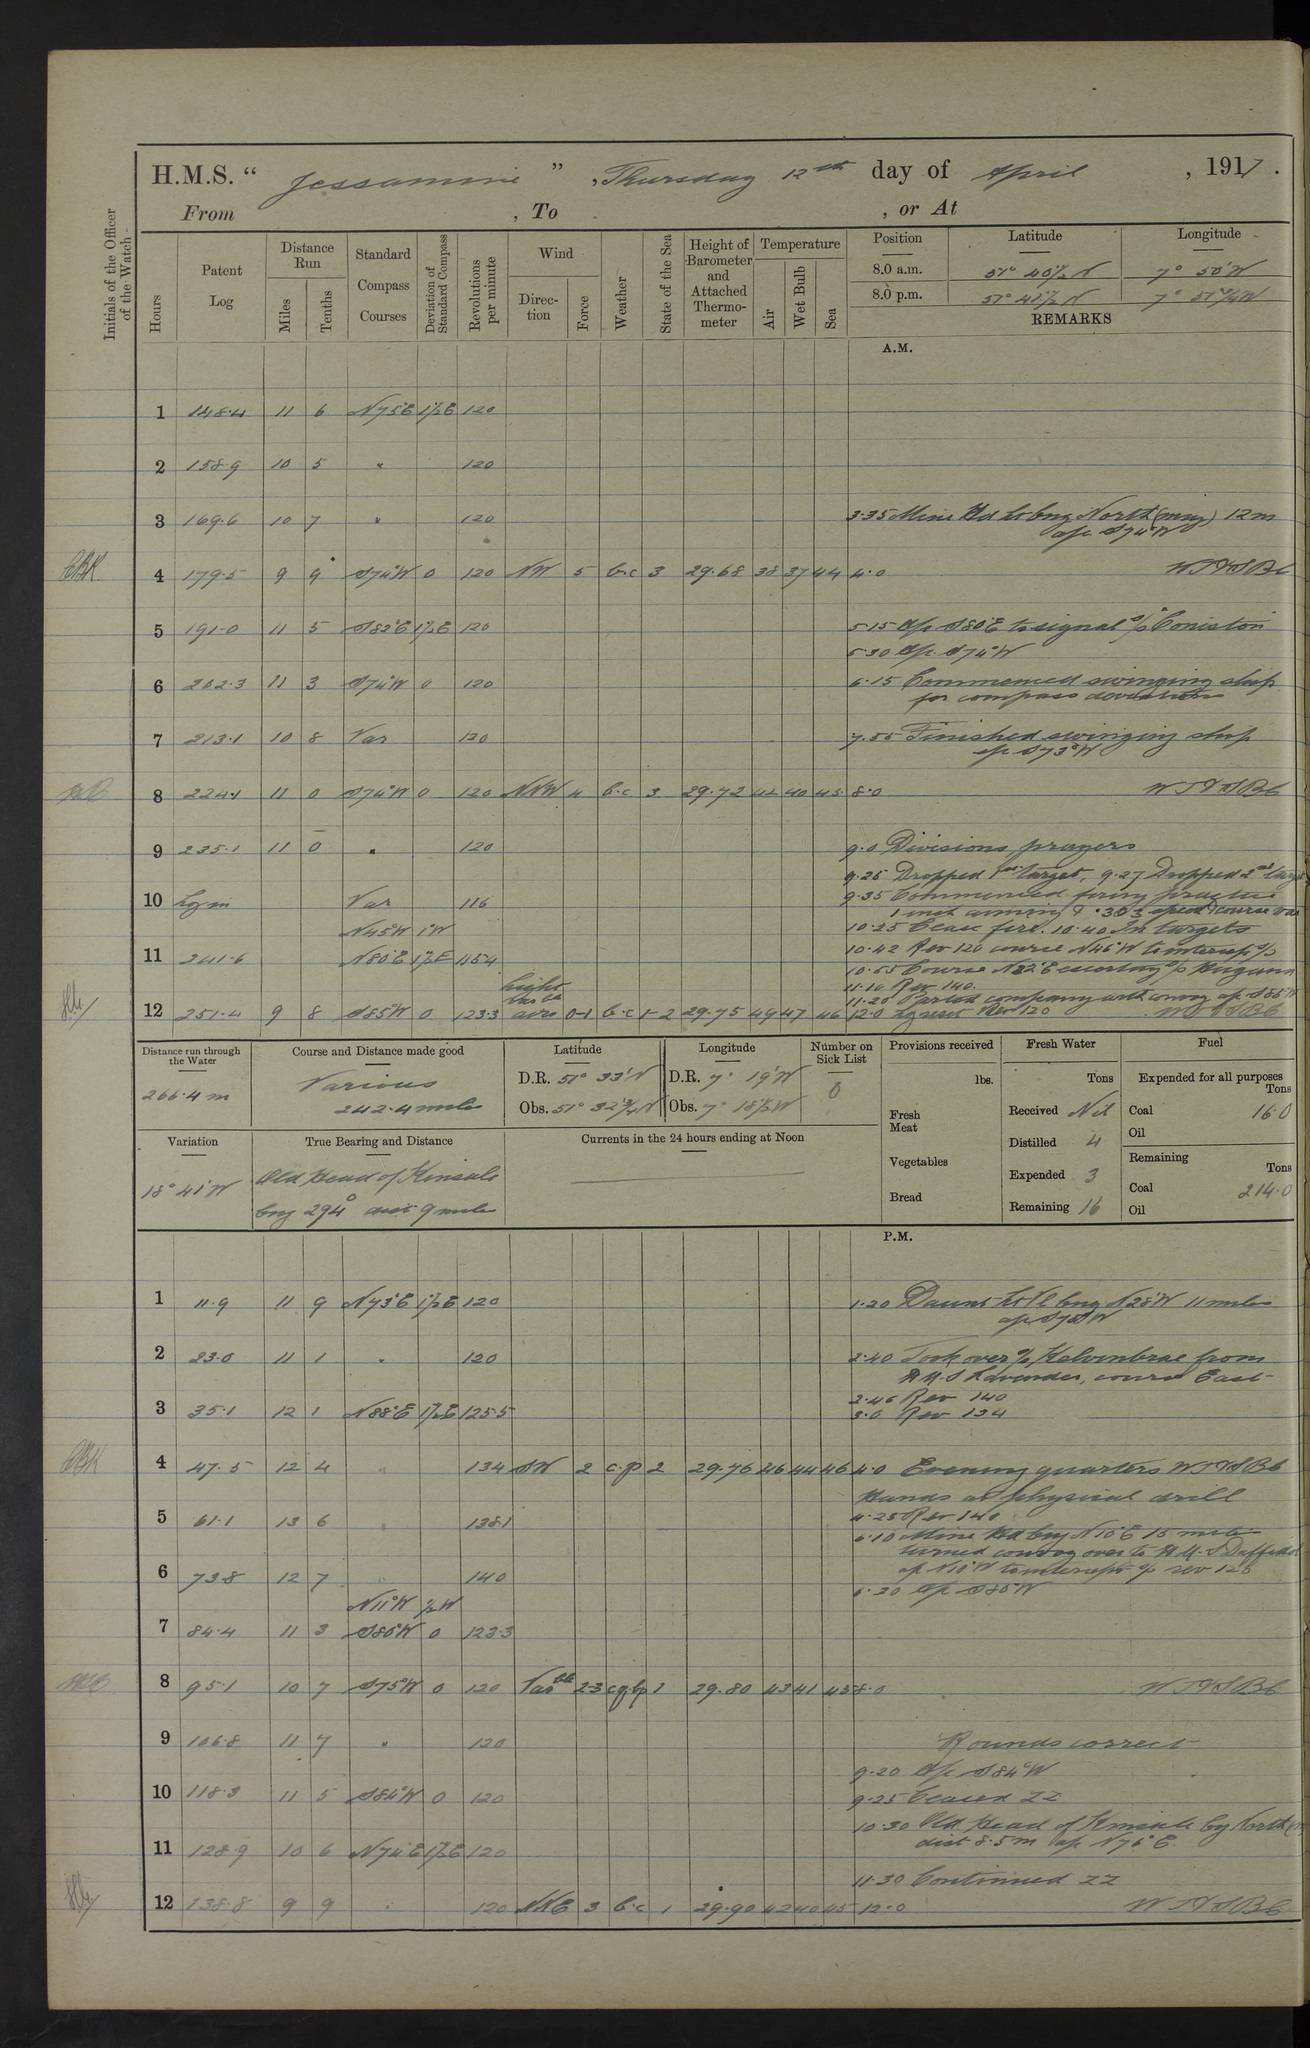 H.M.S. " Jessamine ", Thursday 12th day of April, 1917.
From , To , or At
Initials of the Officer of the Watch
Hours
Patent Log
Distance Run
Miles
Tenths
Standard Compass Courses
Deviation of Standard Compass
Revolutions per minute
Wind
Direction
Force
Weather
State of the Sea
Height of Barometer and Attached Thermometer
Temperature
Air
Wet Bulb
Sea
Position Latitude Longitude
8.0 a.m. 51° 40½ N 7° 50' W
8.0 p.m. 51° 41½ N 7° 51¾ W
REMARKS
A.M.
1 148.4 11 6 N75°E 1½E 120
2 158.9 10 5 " 120
3 169.6 10 7 " 120
3.35 Mine Hd Lt brg North (mag) 12m
a/c S74°W
4 179.5 9 9 S74°W 0 120 NW 5 b.c 3 29.68 38 37 44 4.0
5 191.0 11 5 S82°E 1½E 120
5.15 A/c S80°E to signal s/s Coniston
5.30 A/c S74°W
6 202.3 11 3 S74°W 0 120
6.15 Commenced swinging ship
for compass deviation
7 213.1 10 8 Var 120
7.55 Finished swinging ship
a/c S73°W
8 224.1 11 0 S74°W 0 120 NNW 4 b.c 3 29.72 42 40 45 8.0
9 235.1 11 0 " 120
9.0 Divisions, prayers
9.25 Dropped 1st target, 9.27 Dropped 2nd target
10 Log in Var 116
9.35 Commenced firing practice
1 inch aiming & .303 speed & course var
N45°W 1°W
10.25 Cease fire. 10.40 In targets
11 241.6 N80°E 1½E 115.4
10.42 Rev 120 course N46°W to intercept s/s
10.55 Course N82°E escorting s/s
11.10 Rev 140
11.20 Parted company with convoy a/c S85°W
12 251.4 9 8 S85°W 0 123.3 light airs 0-1 b.c 1-2 29.75 49 47 46 12.0 Lg reset Rev 120
Distance run through the Water
266.4 m
Course and Distance made good
Various
242.4 miles
Latitude
D.R. 51° 33' N
Obs. 51° 32¾ N
Longitude
D.R. 7° 19' W
Obs. 7° 18½ W
Number on Sick List
0
Provisions received
lbs.
Fresh Meat
Vegetables
Bread
Fresh Water
Tons
Received Nil
Distilled 4
Expended 3
Remaining 16
Fuel
Expended for all purposes
Tons
Coal 16.0
Oil
Remaining
Tons
Coal 214.0
Oil
Variation
18° 41' W
True Bearing and Distance
Old Head of Kinsale
brg 294° dist 9 miles
Currents in the 24 hours ending at Noon
P.M.
1 11.9 11 9 N73°E 1½E 120
1.20 Daunt Lt Vl brg N28°W 11 miles
2 23.0 11 1 " 120
2.40 Took over s/s Kelvinbrae from
H.M.S Lavender, course East
2.46 Rev 140
3 35.1 12 1 N88°E 1½E 125.5
3.0 Rev 134
4 47.5 12 4 " 134 SW 2 c.p 2 29.76 46 44 46 4.0 Evening quarters
Hands at physical drill
4.25 Rev 140
5 61.1 13 6 " 138.1
6.10 Mine Hd brg N10°E 15 miles
turned convoy over to H.M.S Daffodil
6 73.8 12 7 " 140
to intercept s/s rev 120
6.30 A/c S80°W
N11°W ½W
7 84.4 11 3 S80°W 0 123.3
8 95.1 10 7 S75°W 0 120 Varble 2-3 1 29.80 43 41 45 8.0
9 106.8 11 7 " 120
Rounds correct
9.20 A/c S84°W
10 118.3 11 5 S84°W 0 120
9.25 Ceased ZZ
10.30 Old Head of Kinsale brg North
11 128.9 10 6 N74°E 1½E 120
dist 8.5m a/c N76°E
11.30 Continued ZZ
12 138.8 9 9 " 120 NNE 3 b.c 1 29.90 42 40 45 12.0